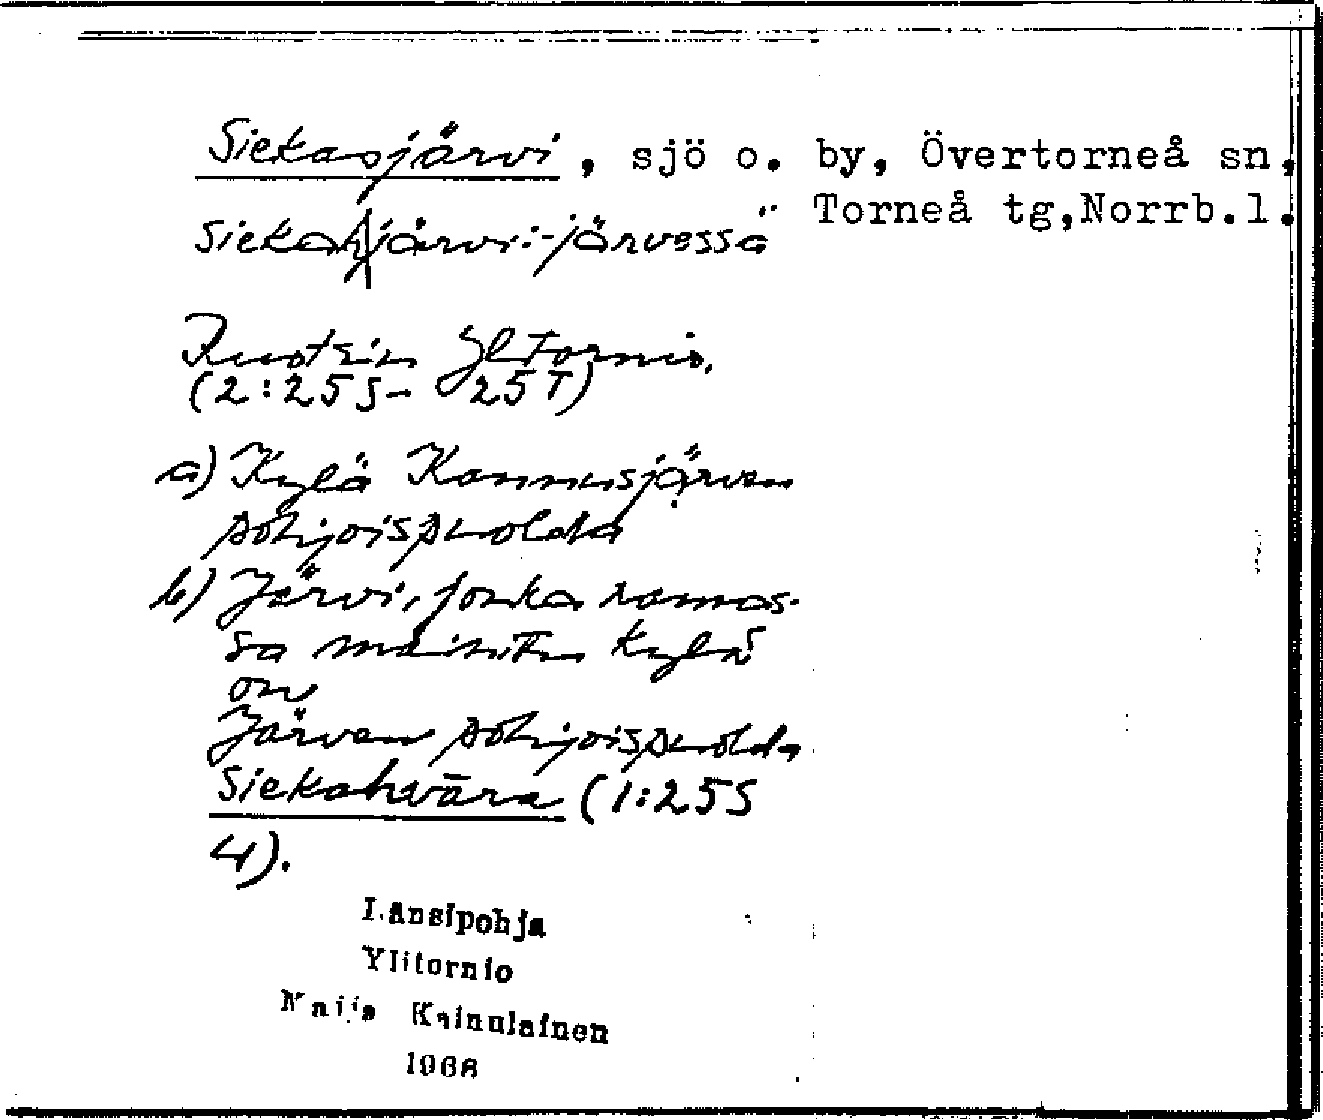 Siekasjärvi, sjö o. by, Övertorneå sn,
Torneå tg,Norrb.l.
Siekahjärvi:-järvessä
Ruotsin Ylitornio.
(2:25S- 25T)
a) Kylä Kannusjärven
pohjoispuolella
b) Järvi, jonka rannas-
sa mainittu kylä
on
Järven pohjoispuolella
Siekahvāra (1:25S
4).
Länsipohja
Ylitornio
Maija Kainulainen
1968